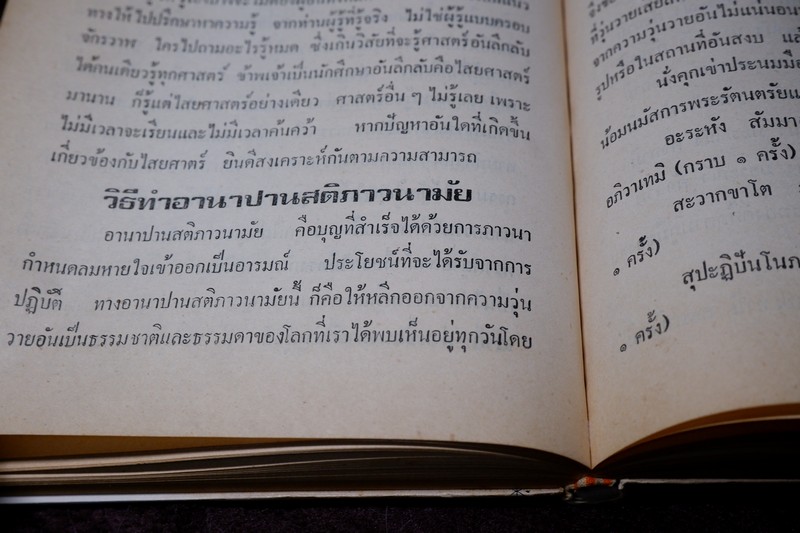 ทางให้ไปปรึกษาหาความรู้ จากท่านผู้รู้ที่รู้จริง ไม่ใช่ผู้รู้แบบครอบ
จักรวาฬ ใครไปถามอะไรรู้หมด ซึ่งเกินวิสัยที่จะรู้ศาสตร์อันลึกลับ
ได้คนเดียวรู้ทุกศาสตร์ ข้าพเจ้าเป็นนักศึกษาอันลึกลับคือไสยศาสตร์
มานาน ก็รู้แต่ไสยศาสตร์อย่างเดียว ศาสตร์อื่น ๆ ไม่รู้เลย เพราะ
ไม่มีเวลาจะเรียนและไม่มีเวลาค้นคว้า หากปัญหาอันใดที่เกิดขึ้น
เกี่ยวข้องกับไสยศาตร์ ยินดีสงเคราะห์กันตามความสามารถ
วิธีทำอานาปานสติภาวนามัย
อานาปานสติภาวนามัย คือบุญที่สำเร็จได้ด้วยการภาวนา
กำหนดลมหายใจเข้าออกเป็นอารมณ์ ประโยชน์ที่จะได้รับจากการ
ปฏิบัติ ทางอานาปานสติภาวนามัยนี้ ก็คือให้หลีกออกจากความวุ่น
วายอันเป็นธรรมชาติและธรรมดาของโลกที่เราได้พบเห็นอยู่ทุกวันโดย
ที่วุ่นวายเสีย
จากความวุ่นวายอันไม่แน่นอน
รูปหรือในสถานที่อันสงบ
นั่งคุกเข่าประนมมือ
น้อมนมัสการพระรัตนตรัย
อะระหัง สัมมา
อภิวาเทมิ (กราบ ๑ ครั้ง)
สะวากขาโต
๑ ครั้ง)
สุปะฏิปันโนภ
๑ ครั้ง)